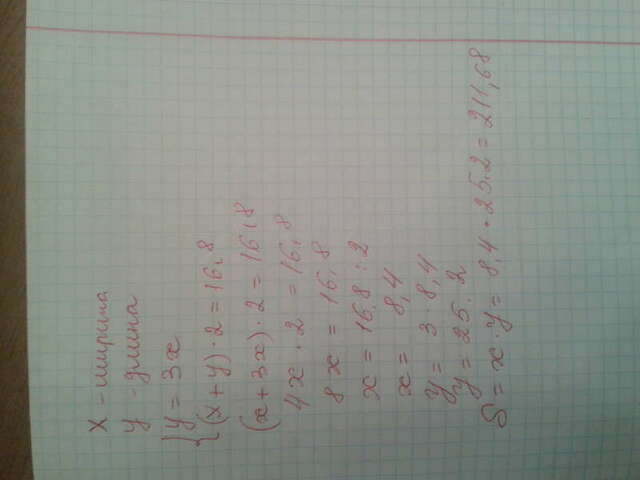 x - ширина
y - длина
{ y = 3x
(x + y) · 2 = 16,8
(x + 3x) · 2 = 16,8
4x · 2 = 16,8
8x = 16,8
x = 16,8 : 2
x = 8,4
y = 3 · 8,4
y = 25,2
S = x · y = 8,4 · 25,2 = 211,68